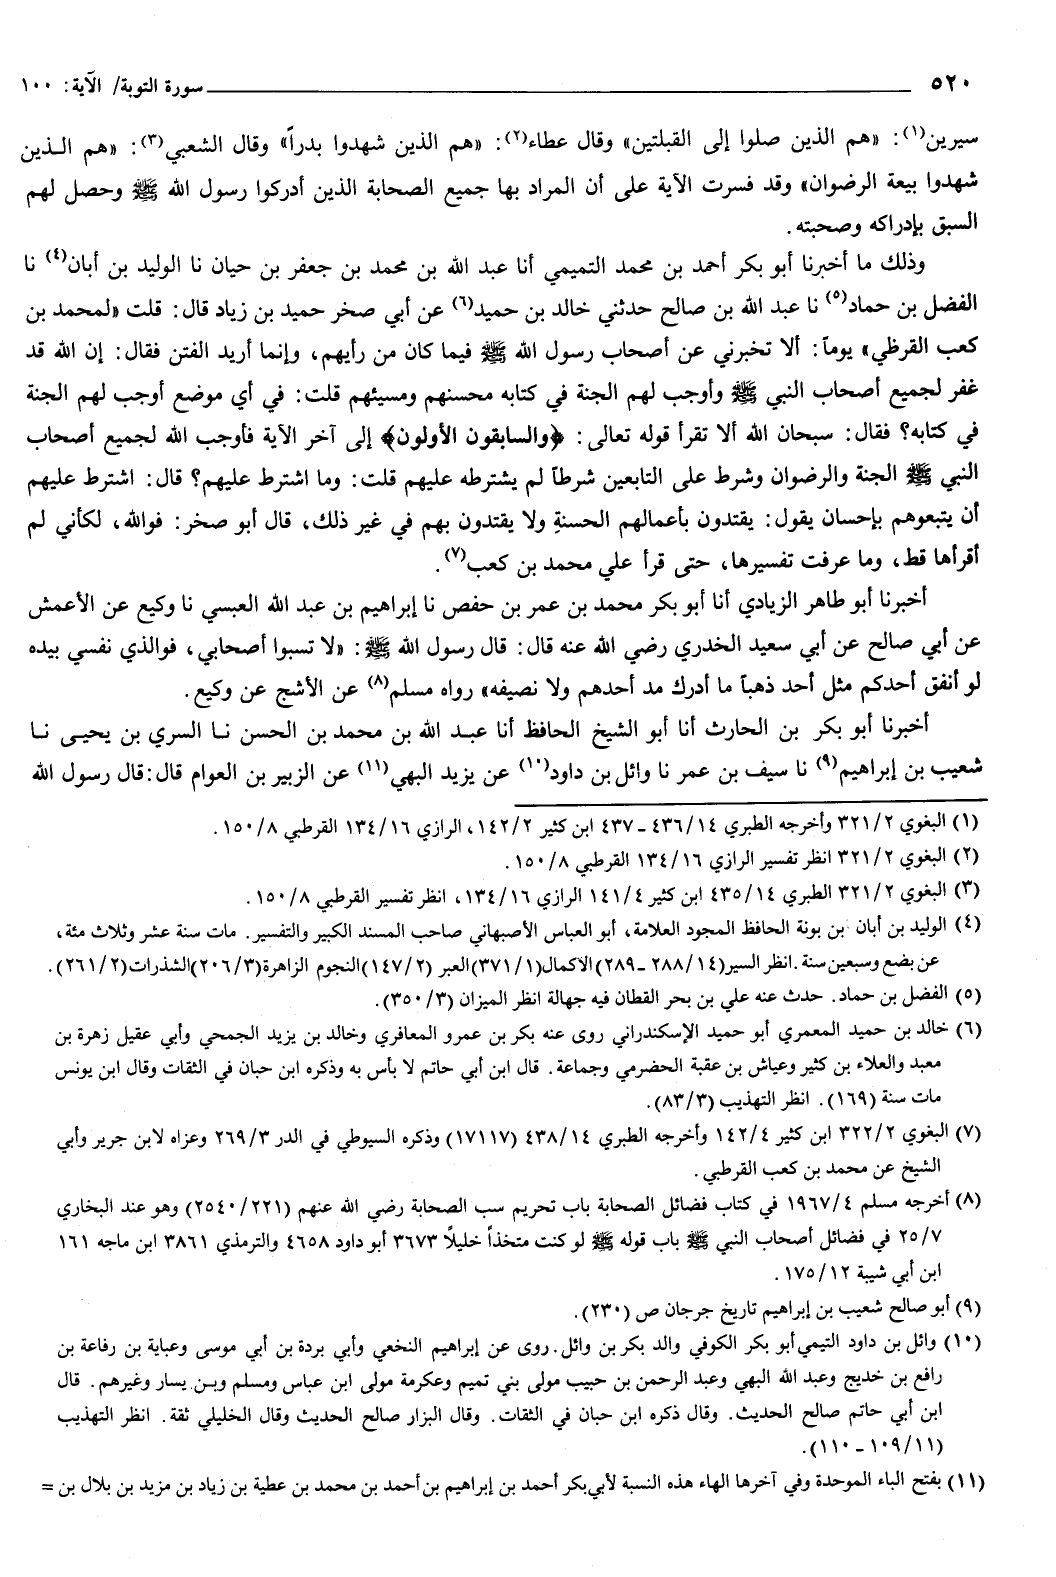 ٥٢٠ سورة التوبة/ الآية: ١٠٠
سيرين(١): «هم الذين صلوا إلى القبلتين» وقال عطاء(٢): «هم الذين شهدوا بدراً» وقال الشعبي(٣): «هم الـذين
شهدوا بيعة الرضوان» وقد فسرت الآية على أن المراد بها جميع الصحابة الذين أدركوا رسول الله ﷺ وحصل لهم
السبق بإدراكه وصحبته.
وذلك ما أخبرنا أبو بكر أحمد بن محمد التميمي أنا عبد الله بن محمد بن جعفر بن حيان نا الوليد بن أبان(٤) نا
الفضل بن حماد(٥) نا عبد الله بن صالح حدثني خالد بن حميد(٦) عن أبي صخر حميد بن زياد قال: قلت «لمحمد بن
كعب القرظي» يوماً: ألا تخبرني عن أصحاب رسول الله ﷺ فيما كان من رأيهم، وإنما أريد الفتن فقال: إن الله قد
غفر لجميع أصحاب النبي ﷺ وأوجب لهم الجنة في كتابه محسنهم ومسيئهم قلت: في أي موضع أوجب لهم الجنة
في كتابه؟ فقال: سبحان الله ألا تقرأ قوله تعالى: ﴿والسابقون الأولون﴾ إلى آخر الآية فأوجب الله لجميع أصحاب
النبي ﷺ الجنة والرضوان وشرط على التابعين شرطاً لم يشترطه عليهم قلت: وما اشترط عليهم؟ قال: اشترط عليهم
أن يتبعوهم بإحسان يقول: يقتدون بأعمالهم الحسنةِ ولا يقتدون بهم في غير ذلك، قال أبو صخر: فوالله، لكأني لم
أقرأها قط، وما عرفت تفسيرها، حتى قرأ علي محمد بن كعب(٧).
أخبرنا أبو طاهر الزيادي أنا أبو بكر محمد بن عمر بن حفص نا إبراهيم بن عبد الله العبسي نا وكيع عن الأعمش
عن أبي صالح عن أبي سعيد الخدري رضي الله عنه قال: قال رسول الله ﷺ: «لا تسبوا أصحابي، فوالذي نفسي بيده
لو أنفق أحدكم مثل أحد ذهباً ما أدرك مد أحدهم ولا نصيفه» رواه مسلم(٨) عن الأشج عن وكيع.
أخبرنا أبو بكر بن الحارث أنا أبو الشيخ الحافظ أنا عبـد الله بن محمد بن الحسن نـا السري بن يحيـى نـا
شعيب بن إبراهيم(٩) نا سيف بن عمر نا وائل بن داود(١٠) عن يزيد البهي(١١) عن الزبير بن العوام قال: قال رسول الله
(١) البغوي ٣٢١/٢ وأخرجه الطبري ٤٣٦/١٤ ـ ٤٣٧ ابن كثير ١٤٢/٢، الرازي ١٣٤/١٦ القرطبي ١٥٠/٨.
(٢) البغوي ٣٢١/٢ انظر تفسير الرازي ١٣٤/١٦ القرطبي ١٥٠/٨.
(٣) البغوي ٣٢١/٢ الطبري ٤٣٥/١٤ ابن كثير ١٤١/٤ الرازي ١٣٤/١٦، انظر تفسير القرطبي ١٥٠/٨.
(٤) الوليد بن أبان بن بونة الحافظ المجود العلامة، أبو العباس الأصبهاني صاحب المسند الكبير والتفسير. مات سنة عشر وثلاث مئة،
عن بضع وسبعين سنة. انظر السير(٢٨٨/١٤ ـ ٢٨٩) الاكمال(٣٧١/١) العبر (١٤٧/٢) النجوم الزاهرة(٢٠٦/٣) الشذرات(٢٦١/٢).
(٥) الفضل بن حماد. حدث عنه علي بن بحر القطان فيه جهالة انظر الميزان (٣٥٠/٣).
(٦) خالد بن حميد المعمري أبو حميد الإسكندراني روى عنه بكر بن عمرو المعافري وخالد بن يزيد الجمحي وأبي عقيل زهرة بن
معبد والعلاء بن كثير وعياش بن عقبة الحضرمي وجماعة. قال ابن أبي حاتم لا بأس به وذكره ابن حبان في الثقات وقال ابن يونس
مات سنة (١٦٩). انظر التهذيب (٨٣/٣).
(٧) البغوي ٣٢٢/٢ ابن كثير ١٤٢/٤ وأخرجه الطبري ٤٣٨/١٤ (١٧١١٧) وذكره السيوطي في الدر ٢٦٩/٣ وعزاه لابن جرير وأبي
الشيخ عن محمد بن كعب القرطبي.
(٨) أخرجه مسلم ١٩٦٧/٤ في كتاب فضائل الصحابة باب تحريم سب الصحابة رضي الله عنهم (٢٥٤٠/٢٢١) وهو عند البخاري
٢٥/٧ في فضائل أصحاب النبي ﷺ باب قوله ﷺ لو كنت متخذاً خليلاً ٣٦٧٣ أبو داود ٤٦٥٨ والترمذي ٣٨٦١ ابن ماجه ١٦١
ابن أبي شيبة ١٧٥/١٢.
(٩) أبو صالح شعيب بن إبراهيم تاريخ جرجان ص (٢٣٠).
(١٠) وائل بن داود التيمي أبو بكر الكوفي والد بكر بن وائل. روى عن إبراهيم النخعي وأبي بردة بن أبي موسى وعباية بن رفاعة بن
رافع بن خديج وعبد الله البهي وعبد الرحمن بن حبيب مولى بني تميم وعكرمة مولى ابن عباس ومسلم وبـن يسار وغيرهم. قال
ابن أبي حاتم صالح الحديث. وقال ذكره ابن حبان في الثقات. وقال البزار صالح الحديث وقال الخليلي ثقة. انظر التهذيب
(١٠٩/١١ ـ ١١٠).
(١١) بفتح الباء الموحدة وفي آخرها الهاء هذه النسبة لأبي بكر أحمد بن إبراهيم بن أحمد بن محمد بن عطية بن زياد بن مزيد بن بلال بن =